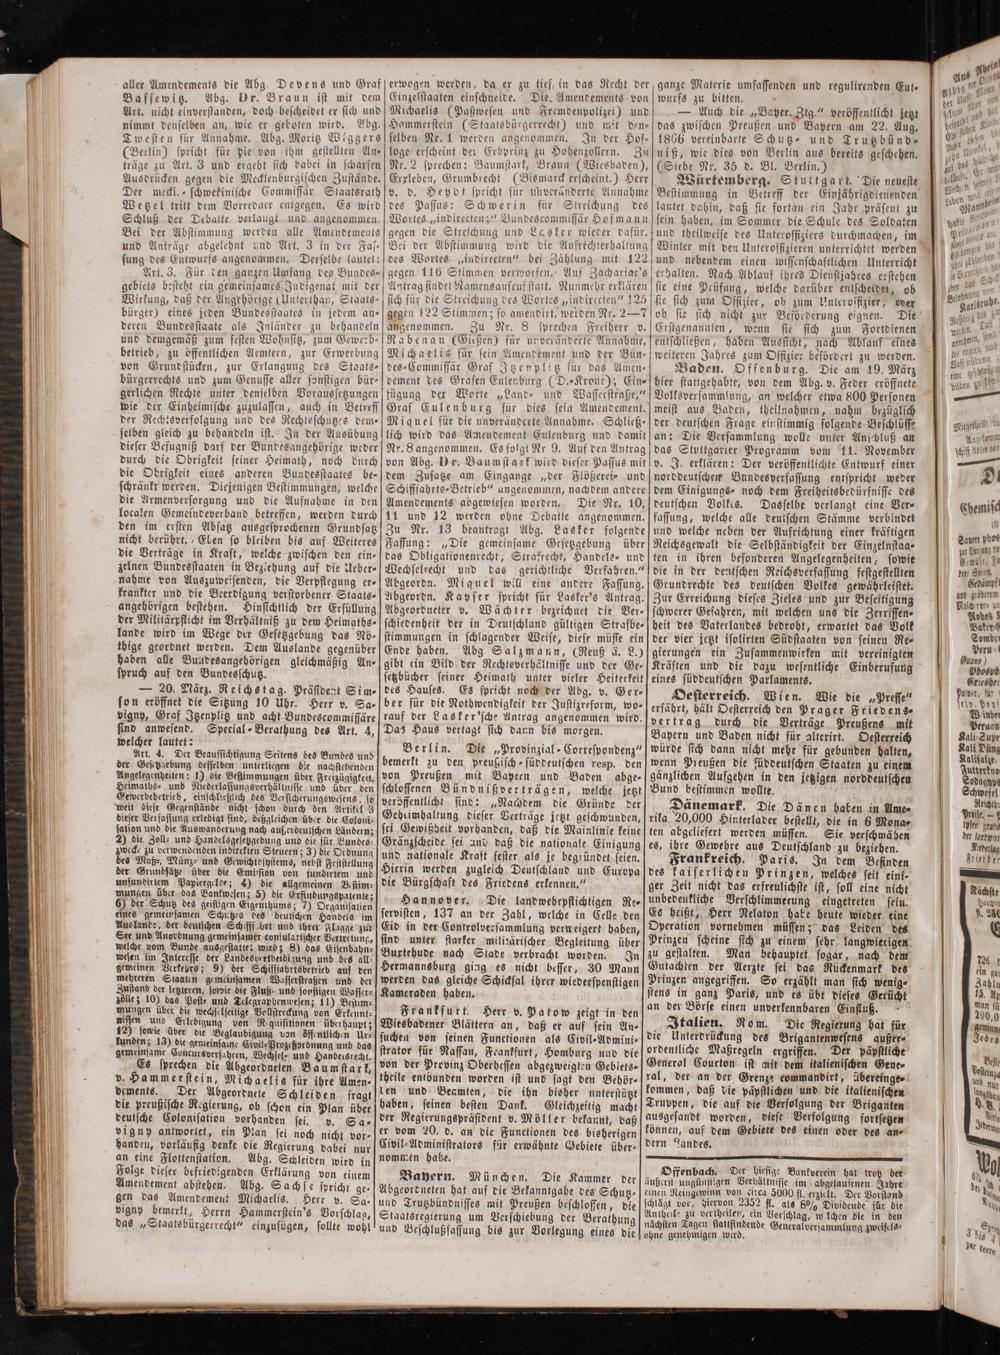 aller Amendements die Abg. Devens und Graf
Bassewitz. Abg. Dr. Braun ist mit dem
Art. nicht einverstanden, doch bescheidet er sich und
nimmt denselben an, wie er geboten wird. Abg.
Twesten für Annahme. Abg. Moritz Wiggers
(Berlin) spricht für die von ihm gestellten An-
träge zu Art. 3 und ergeht sich dabei in scharfen
Ausdrücken gegen die Mecklenburgischen Zustände.
Der meckl.-schwerinische Commissär Staatsrath
Wetzel tritt dem Vorredner entgegen. Es wird
Schluß der Debatte verlangt und angenommen.
Bei der Abstimmung werden alle Amendements
und Anträge abgelehnt und Art. 3 in der Fas-
sung des Entwurfs angenommen. Derselbe lautet:
Art. 3. Für den ganzen Umfang des Bundes-
gebiets besteht ein gemeinsames Indigenat mit der
Wirkung, daß der Angehörige (Unterthan, Staats-
bürger) eines jeden Bundesstaates in jedem an-
deren Bundesstaate als Inländer zu behandeln
und demgemäß zum festen Wohnsitz, zum Gewerb-
betrieb, zu öffentlichen Aemtern, zur Erwerbung
von Grundstücken, zur Erlangung des Staats-
bürgerrechts und zum Genusse aller sonstigen bür-
gerlichen Rechte unter denselben Voraussetzungen
wie der Einheimische zuzulassen, auch in Betreff
der Rechtsverfolgung und des Rechtsschutzes dem-
selben gleich zu behandeln ist. In der Ausübung
dieser Befugniß darf der Bundesangehörige weder
durch die Obrigkeit seiner Heimath, noch durch
die Obrigkeit eines anderen Bundesstaates be-
schränkt werden. Diejenigen Bestimmungen, welche
die Armenversorgung und die Aufnahme in den
localen Gemeindeverband betreffen, werden durch
den im ersten Absatz ausgesprochenen Grundsatz
nicht berührt. Eben so bleiben bis auf Weiteres
die Verträge in Kraft, welche zwischen den ein-
zelnen Bundesstaaten in Beziehung auf die Ueber-
nahme von Auszuweisenden, die Verpflegung er-
krankter und die Beerdigung verstorbener Staats-
angehörigen bestehen. Hinsichtlich der Erfüllung
der Militärpflicht im Verhältniß zu dem Heimaths-
lande wird im Wege der Gesetzgebung das Nö-
thige geordnet werden. Dem Auslande gegenüber
haben alle Bundesangehörigen gleichmäßig An-
spruch auf den Bundesschutz.
— 20. März. Reichstag. Präsident Sim-
son eröffnet die Sitzung 10 Uhr. Herr v. Sa-
vigny, Graf Itzenplitz und acht Bundescommissäre
sind anwesend. Special-Berathung des Art. 4,
welcher lautet:
Art. 4. Der Beaufsichtigung Seitens des Bundes und
der Gesetzgebung desselben unterliegen die nachstehenden
Angelegenheiten: 1) die Bestimmungen über Freizügigkeit,
Heimaths- und Niederlassungsverhältnisse und über den
Gewerbebetrieb, einschließlich des Versicherungswesens, so
weit diese Gegenstände nicht schon durch den Artikel 3
dieser Verfassung erledigt sind, deßgleichen über die Coloni-
sation und die Auswanderung nach außerdeutschen Ländern;
2) die Zoll- und Handelsgesetzgebung und die für Bundes-
zwecke zu verwendenden indirekten Steuern; 3) die Ordnung
des Maß-, Münz- und Gewichtssystems, nebst Feststellung
der Grundsätze über die Emission von fundirtem und
unfundirtem Papiergelde; 4) die allgemeinen Bestim-
mungen über das Bankwesen; 5) die Erfindungspatente;
6) der Schutz des geistigen Eigenthums; 7) Organisation
eines gemeinsamen Schutzes des deutschen Handels im
Auslande, der deutschen Schifffahrt und ihrer Flagge zur
See und Anordnung gemeinsamer consularischer Vertretung,
welche vom Bunde ausgestattet wird; 8) das Eisenbahn-
wesen im Interesse der Landesvertheidigung und des all-
gemeinen Verkehrs; 9) der Schifffahrtsbetrieb auf den
mehreren Staaten gemeinsamen Wasserstraßen und der
Zustand der letzteren, sowie die Fluß- und sonstigen Wasser-
zölle; 10) das Post- und Telegraphenwesen; 11) Bestim-
mungen über die wechselseitige Vollstreckung von Erkennt-
nissen und Erledigung von Requisitionen überhaupt;
12) sowie über die Beglaubigung von öffentlichen Ur-
kunden; 13) die gemeinsame Civil-Prozeßordnung und das
gemeinsame Concursverfahren, Wechsel- und Handelsrecht.
Es sprechen die Abgeordneten Baumstark,
v. Hammerstein, Michaelis für ihre Amen-
dements. Der Abgeordnete Schleiden fragt
die preußische Regierung, ob schon ein Plan über
deutsche Colonisation vorhanden sei. v. Sa-
vigny antwortet, ein Plan sei noch nicht vor-
handen, vorläufig denke die Regierung dabei nur
an eine Flottenstation. Abg. Schleiden wird in
Folge dieser befriedigenden Erklärung von einem
Amendement abstehen. Abg. Sachse spricht ge-
gen das Amendement Michaelis. Herr v. Sa-
vigny bemerkt, Herrn Hammerstein's Vorschlag,
das „Staatsbürgerrecht“ einzufügen, sollte wohl
erwogen werden, da er zu tief in das Recht der
Einzelstaaten einschneide. Die Amendements von
Michaelis (Paßwesen und Fremdenpolizei) und
Hammerstein (Staatsbürgerrecht) und mit den-
selben Nr. 1 werden angenommen. In der Hof-
loge erscheint der Erbprinz zu Hohenzollern. Zu
Nr. 2 sprechen: Baumstark, Braun (Wiesbaden),
Erxleben, Grumbrecht (Bismarck erscheint.) Herr
v. d. Heydt spricht für unveränderte Annahme
des Passus: Schwerin für Streichung des
Wortes „indirecten;“ Bundescommissär Hofmann
gegen die Streichung und Lasker wieder dafür.
Bei der Abstimmung wird die Aufrechterhaltung
des Wortes „indirecten“ bei Zählung mit 122
gegen 116 Stimmen verworfen. Auf Zachariae's
Antrag findet Namensaufruf statt. Nunmehr erklären
sich für die Streichung des Wortes „indirecten“ 125
gegen 122 Stimmen; so amendirt, werden Nr. 2—7
angenommen. Zu Nr. 8 sprechen Freiherr v.
Rabenau (Gießen) für unveränderte Annahme,
Michaelis für sein Amendement und der Bun-
des-Commissär Graf Itzenplitz für das Amen-
dement des Grafen Eulenburg (D.-Krone); Ein-
fügung der Worte „Land- und Wasserstraße,“
Graf Eulenburg für dies sein Amendement.
Miquel für die unveränderte Annahme. Schließ-
lich wird das Amendement Eulenburg und damit
Nr. 8 angenommen. Es folgt Nr. 9. Auf den Antrag
von Abg. Dr. Baumstark wird dieser Passus mit
dem Zusatze am Eingange „der Flößerei- und
Schifffahrts-Betrieb“ angenommen, nachdem andere
Amendements abgewiesen worden. Die Nr. 10,
11 und 12 werden ohne Debatte angenommen.
Zu Nr. 13 beantragt Abg. Lasker folgende
Fassung: „Die gemeinsame Gesetzgebung über
das Obligationenrecht, Strafrecht, Handels- und
Wechselrecht und das gerichtliche Verfahren.“
Abgeordn. Miquel will eine andere Fassung.
Abgeordn. Kayser spricht für Lasker's Antrag.
Abgeordneter v. Wächter bezeichnet die Ver-
schiedenheit der in Deutschland gültigen Strafbe-
stimmungen in schlagender Weise, diese müsse ein
Ende haben. Abg Salzmann, (Reuß ä. L.)
gibt ein Bild der Rechtsverhältnisse und der Ge-
setzbücher seiner Heimath unter vieler Heiterkeit
des Hauses. Es spricht noch der Abg. v. Ger-
ber für die Nothwendigkeit der Justizreform, wo-
rauf der Lasker'sche Antrag angenommen wird.
Das Haus vertagt sich dann bis morgen.
Berlin. Die „Provinzial-Correspondenz“
bemerkt zu den preußisch-süddeutschen resp. den
von Preußen mit Bayern und Baden abge-
schlossenen Bündnißverträgen, welche jetzt
veröffentlicht sind: „Nachdem die Gründe der
Geheimhaltung dieser Verträge jetzt geschwunden,
sei Gewißheit vorhanden, daß die Mainlinie keine
Gränzscheide sei und daß die nationale Einigung
und nationale Kraft fester als je begründet seien.
Hierin werden zugleich Deutschland und Europa
die Bürgschaft des Friedens erkennen.“
Hannover. Die landwehrpflichtigen Re-
servisten, 137 an der Zahl, welche in Celle den
Eid in der Controlversammlung verweigert haben,
sind unter starker militärischer Begleitung über
Buxtehude nach Stade verbracht worden. In
Hermannsburg ging es nicht besser, 30 Mann
werden das gleiche Schicksal ihrer wiederspenstigen
Kameraden haben.
Frankfurt. Herr v. Patow zeigt in den
Wiesbadener Blättern an, daß er auf sein An-
suchen von seinen Functionen als Civil-Admini-
strator für Nassau, Frankfurt, Homburg und die
von der Provinz Oberhessen abgezweigten Gebiets-
theile entbunden worden ist und sagt den Behör-
den und Beamten, die ihn bisher unterstützt
haben, seinen besten Dank. Gleichzeitig macht
der Regierungspräsident v. Möller bekannt, daß
er vom 20. d. an die Functionen des bisherigen
Civil-Administrators für erwähnte Gebiete über-
nommen habe.
Bayern. München. Die Kammer der
Abgeordneten hat auf die Bekanntgabe des Schutz-
und Trutzbündnisses mit Preußen beschlossen, die
Staatsregierung um Verschiebung der Berathung
und Beschlußfassung bis zur Vorlegung eines die
ganze Materie umfassenden und regulirenden Ent-
wurfs zu bitten.
— Auch die „Bayer. Ztg.“ veröffentlicht jetzt
das zwischen Preußen und Bayern am 22. Aug.
1866 vereinbarte Schutz- und Trutzbünd-
niß, wie dies von Berlin aus bereits geschehen.
(Siehe Nr. 35 d. Bl. Berlin.)
Würtemberg. Stuttgart. Die neueste
Bestimmung in Betreff der Einjährigdienenden
lautet dahin, daß sie fortan ein Jahr präsent zu
sein haben, im Sommer die Schule des Soldaten
und theilweise des Unteroffiziers durchmachen, im
Winter mit den Unteroffizieren unterrichtet werden
und nebendem einen wissenschaftlichen Unterricht
erhalten. Nach Ablauf ihres Dienstjahres erstehen
sie eine Prüfung, welche darüber entscheidet, ob
sie sich zum Offizier, ob zum Unteroffizier, oder
ob sie sich nicht zur Beförderung eignen. Die
Erstgenannten, wenn sie sich zum Fortdienen
entschließen, haben Aussicht, nach Ablauf eines
weiteren Jahres zum Offizier befördert zu werden.
Baden. Offenburg. Die am 19. März
hier stattgehabte, von dem Abg. v. Feder eröffnete
Volksversammlung, an welcher etwa 800 Personen
meist aus Baden, theilnahmen, nahm bezüglich
der deutschen Frage einstimmig folgende Beschlüsse
an: Die Versammlung wolle unter Anschluß an
das Stuttgarter Programm vom 11. November
v. J. erklären: Der veröffentlichte Entwurf einer
norddeutschen Bundesverfassung entspricht weder
dem Einigungs- noch dem Freiheitsbedürfnisse des
deutschen Volkes. Dasselbe verlangt eine Ver-
fassung, welche alle deutschen Stämme verbindet
und welche neben der Aufrichtung einer kräftigen
Reichsgewalt die Selbständigkeit der Einzelnstaa-
ten in ihren besonderen Angelegenheiten, sowie
die in der deutschen Reichsverfassung festgestellten
Grundrechte des deutschen Volkes gewährleistet.
Zur Erreichung dieses Zieles und zur Beseitigung
schwerer Gefahren, mit welchen uns die Zerrissen-
heit des Vaterlandes bedroht, erwartet das Volk
der vier jetzt isolirten Südstaaten von seinen Re-
gierungen ein Zusammenwirken mit vereinigten
Kräften und die dazu wesentliche Einberufung
eines süddeutschen Parlaments.
Oesterreich. Wien. Wie die „Presse“
erfährt, hält Oesterreich den Prager Friedens-
vertrag durch die Verträge Preußens mit
Bayern und Baden nicht für alterirt. Oesterreich
würde sich dann nicht mehr für gebunden halten,
wenn Preußen die süddeutschen Staaten zu einem
gänzlichen Aufgehen in den jetzigen norddeutschen
Bund bestimmen wollte.
Dänemark. Die Dänen haben in Ame-
rika 20,000 Hinterlader bestellt, die in 6 Mona-
ten abgeliefert werden müssen. Sie verschmähen
es, ihre Gewehre aus Deutschland zu beziehen.
Frankreich. Paris. In dem Befinden
des kaiserlichen Prinzen, welches seit eini-
ger Zeit nicht das erfreulichste ist, soll eine nicht
unbedenkliche Verschlimmerung eingetreten sein.
Es heißt, Herr Nelaton habe heute wieder eine
Operation vornehmen müssen; das Leiden des
Prinzen scheine sich zu einem sehr langwierigen
zu gestalten. Man behauptet sogar, nach dem
Gutachten der Aerzte sei das Rückenmark des
Prinzen angegriffen. So erzählt man sich wenig-
stens in ganz Paris, und es übt dieses Gerücht
an der Börse einen unverkennbaren Einfluß.
Italien. Rom. Die Regierung hat für
die Unterdrückung des Brigantenwesens außer-
ordentliche Maßregeln ergriffen. Der päpstliche
General Courton ist mit dem italienischen Gene-
ral, der an der Grenze commandirt, übereinge-
kommen, daß die päpstlichen und die italienischen
Truppen, die auf die Verfolgung der Briganten
ausgesandt worden, diese Verfolgung fortsetzen
können, auf dem Gebiete des einen oder des an-
dern Landes.
Offenbach. Der hiesige Bankverein hat trotz der
äußerst ungünstigen Verhältnisse im abgelaufenen Jahre
einen Reingewinn von circa 5000 fl. erzielt. Der Vorstand
schlägt vor, hiervon 2352 fl. als 8% Dividende für die
Antheile zu vertheilen, ein Vorschlag, welchen die in den
nächsten Tagen stattfindende Generalversammlung zweifels-
ohne genehmigen wird.